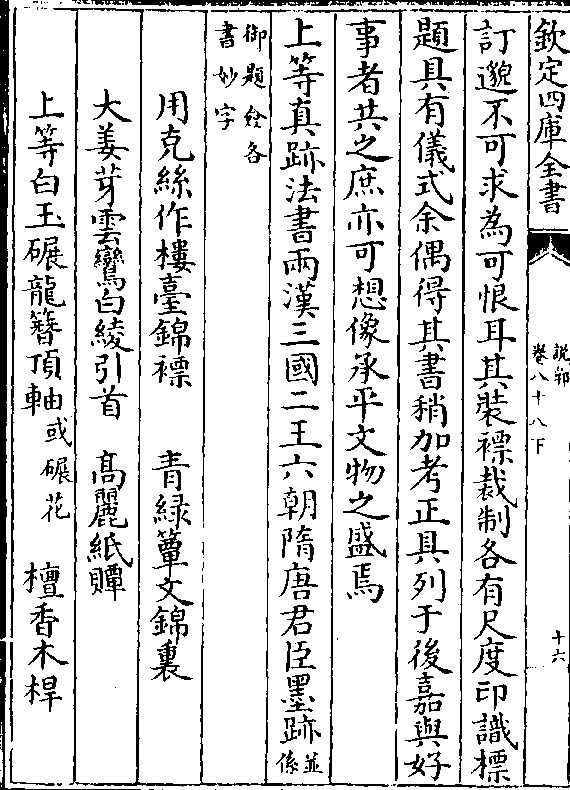 欽定四庫全書
說郛
卷八十八下
十六
訂邈不可求為可恨耳其裝褾裁制各有尺度印識標
題具有儀式余偶得其書稍加考正具列于後嘉與好
事者共之庶亦可想像承平文物之盛焉
上等真跡法書兩漢三國二王六朝隋唐君臣墨跡並係
御題僉各
書妙字
用克絲作樓臺錦褾　青綠簟文錦裏
大姜芽雲鸞白綾引首　高麗紙贉
上等白玉碾龍簪頂軸或碾花　檀香木桿